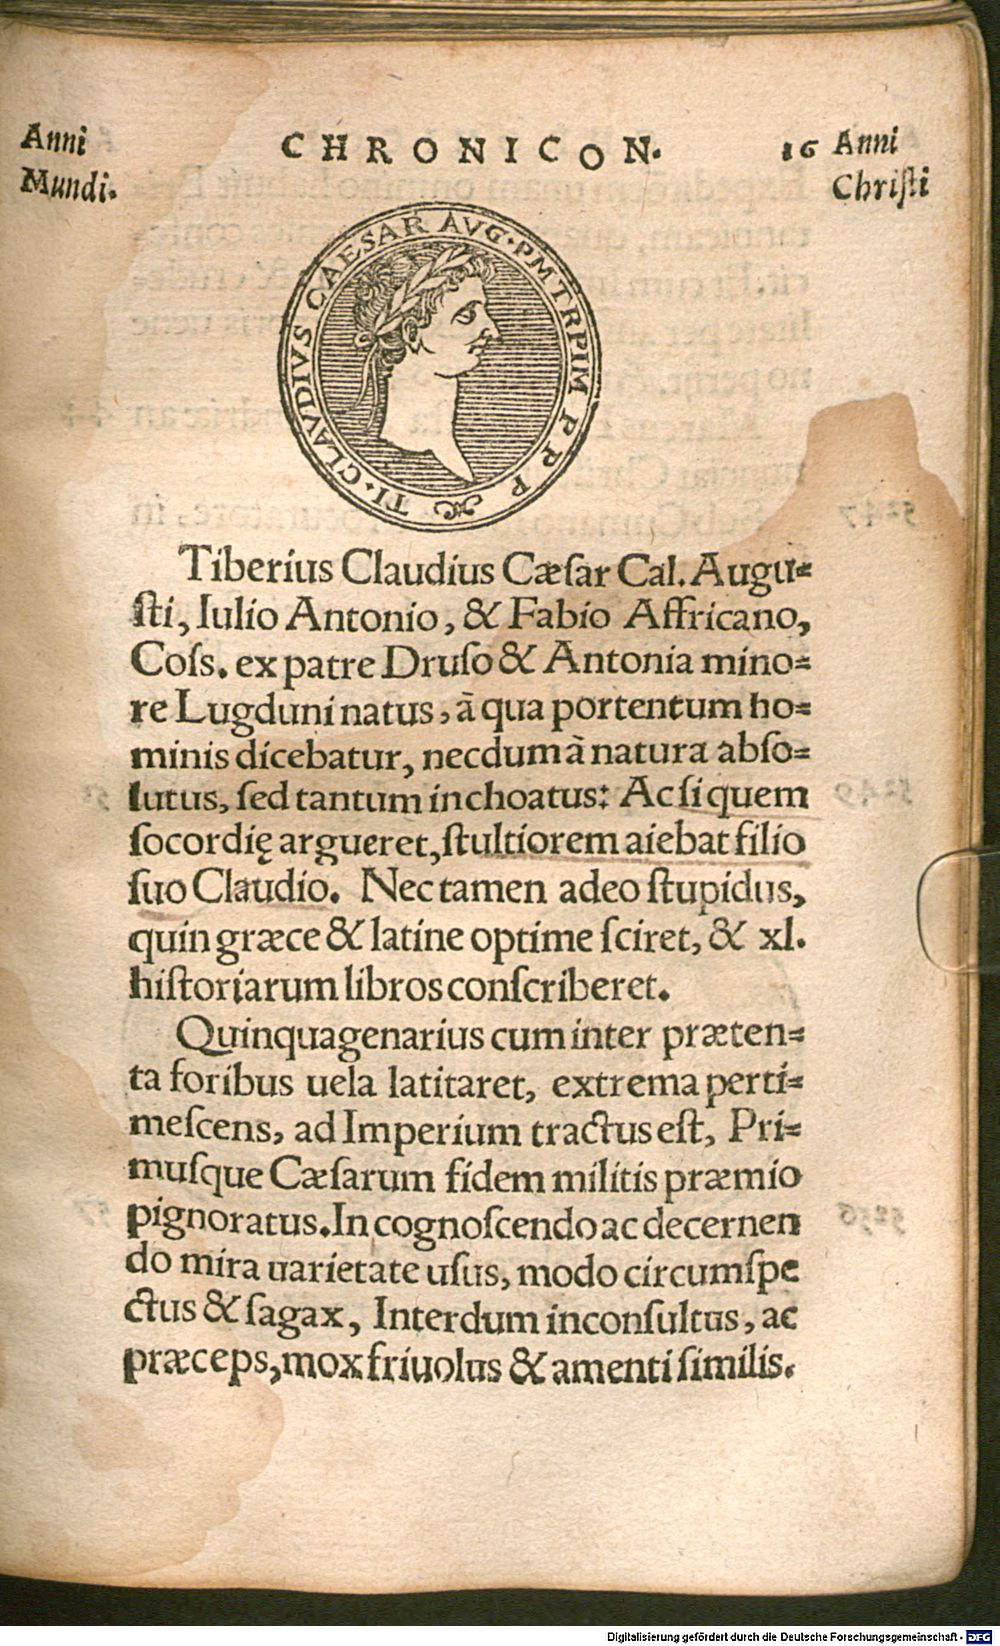 Anni
Mundi.
CHRONICON.
16
Anni
Chriſti
TI·CLAVDIVS CAESAR AVG·PMTRPIM P P P
Tiberius Claudius Cæſar Cal. Augu=
ſti, Iulio Antonio, & Fabio Affricano,
Coſs. ex patre Druſo & Antonia mino=
re Lugduni natus, à qua portentum ho=
minis dicebatur, necdum à natura abſo=
lutus, ſed tantum inchoatus: Ac ſi quem
ſocordię argueret, ſtultiorem aiebat filio
ſuo Claudio. Nec tamen adeo ſtupidus,
quin græce & latine optime ſciret, & xl.
hiſtoriarum libros conſcriberet.
Quinquagenarius cum inter præten=
ta foribus uela latitaret, extrema perti=
meſcens, ad Imperium tractus eſt, Pri=
muſque Cæſarum fidem militis præmio
pignoratus. In cognoſcendo ac decernen
do mira uarietate uſus, modo circumſpe
ctus & ſagax, Interdum inconſultus, ac
præceps, mox friuolus & amenti ſimilis.
Digitalisierung gefördert durch die Deutsche Forschungsgemeinschaft - DFG